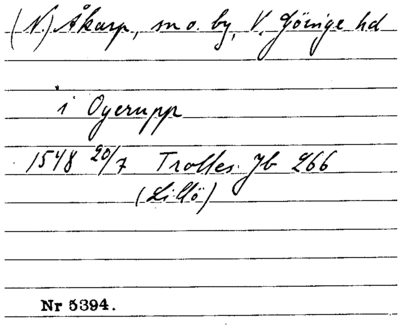 (N.) Åkarp, sn o. by, V. Göinge hd
i Oyerupp
1548 20/7 Trolles Jb 266
(Lillö)
Nr 5394.